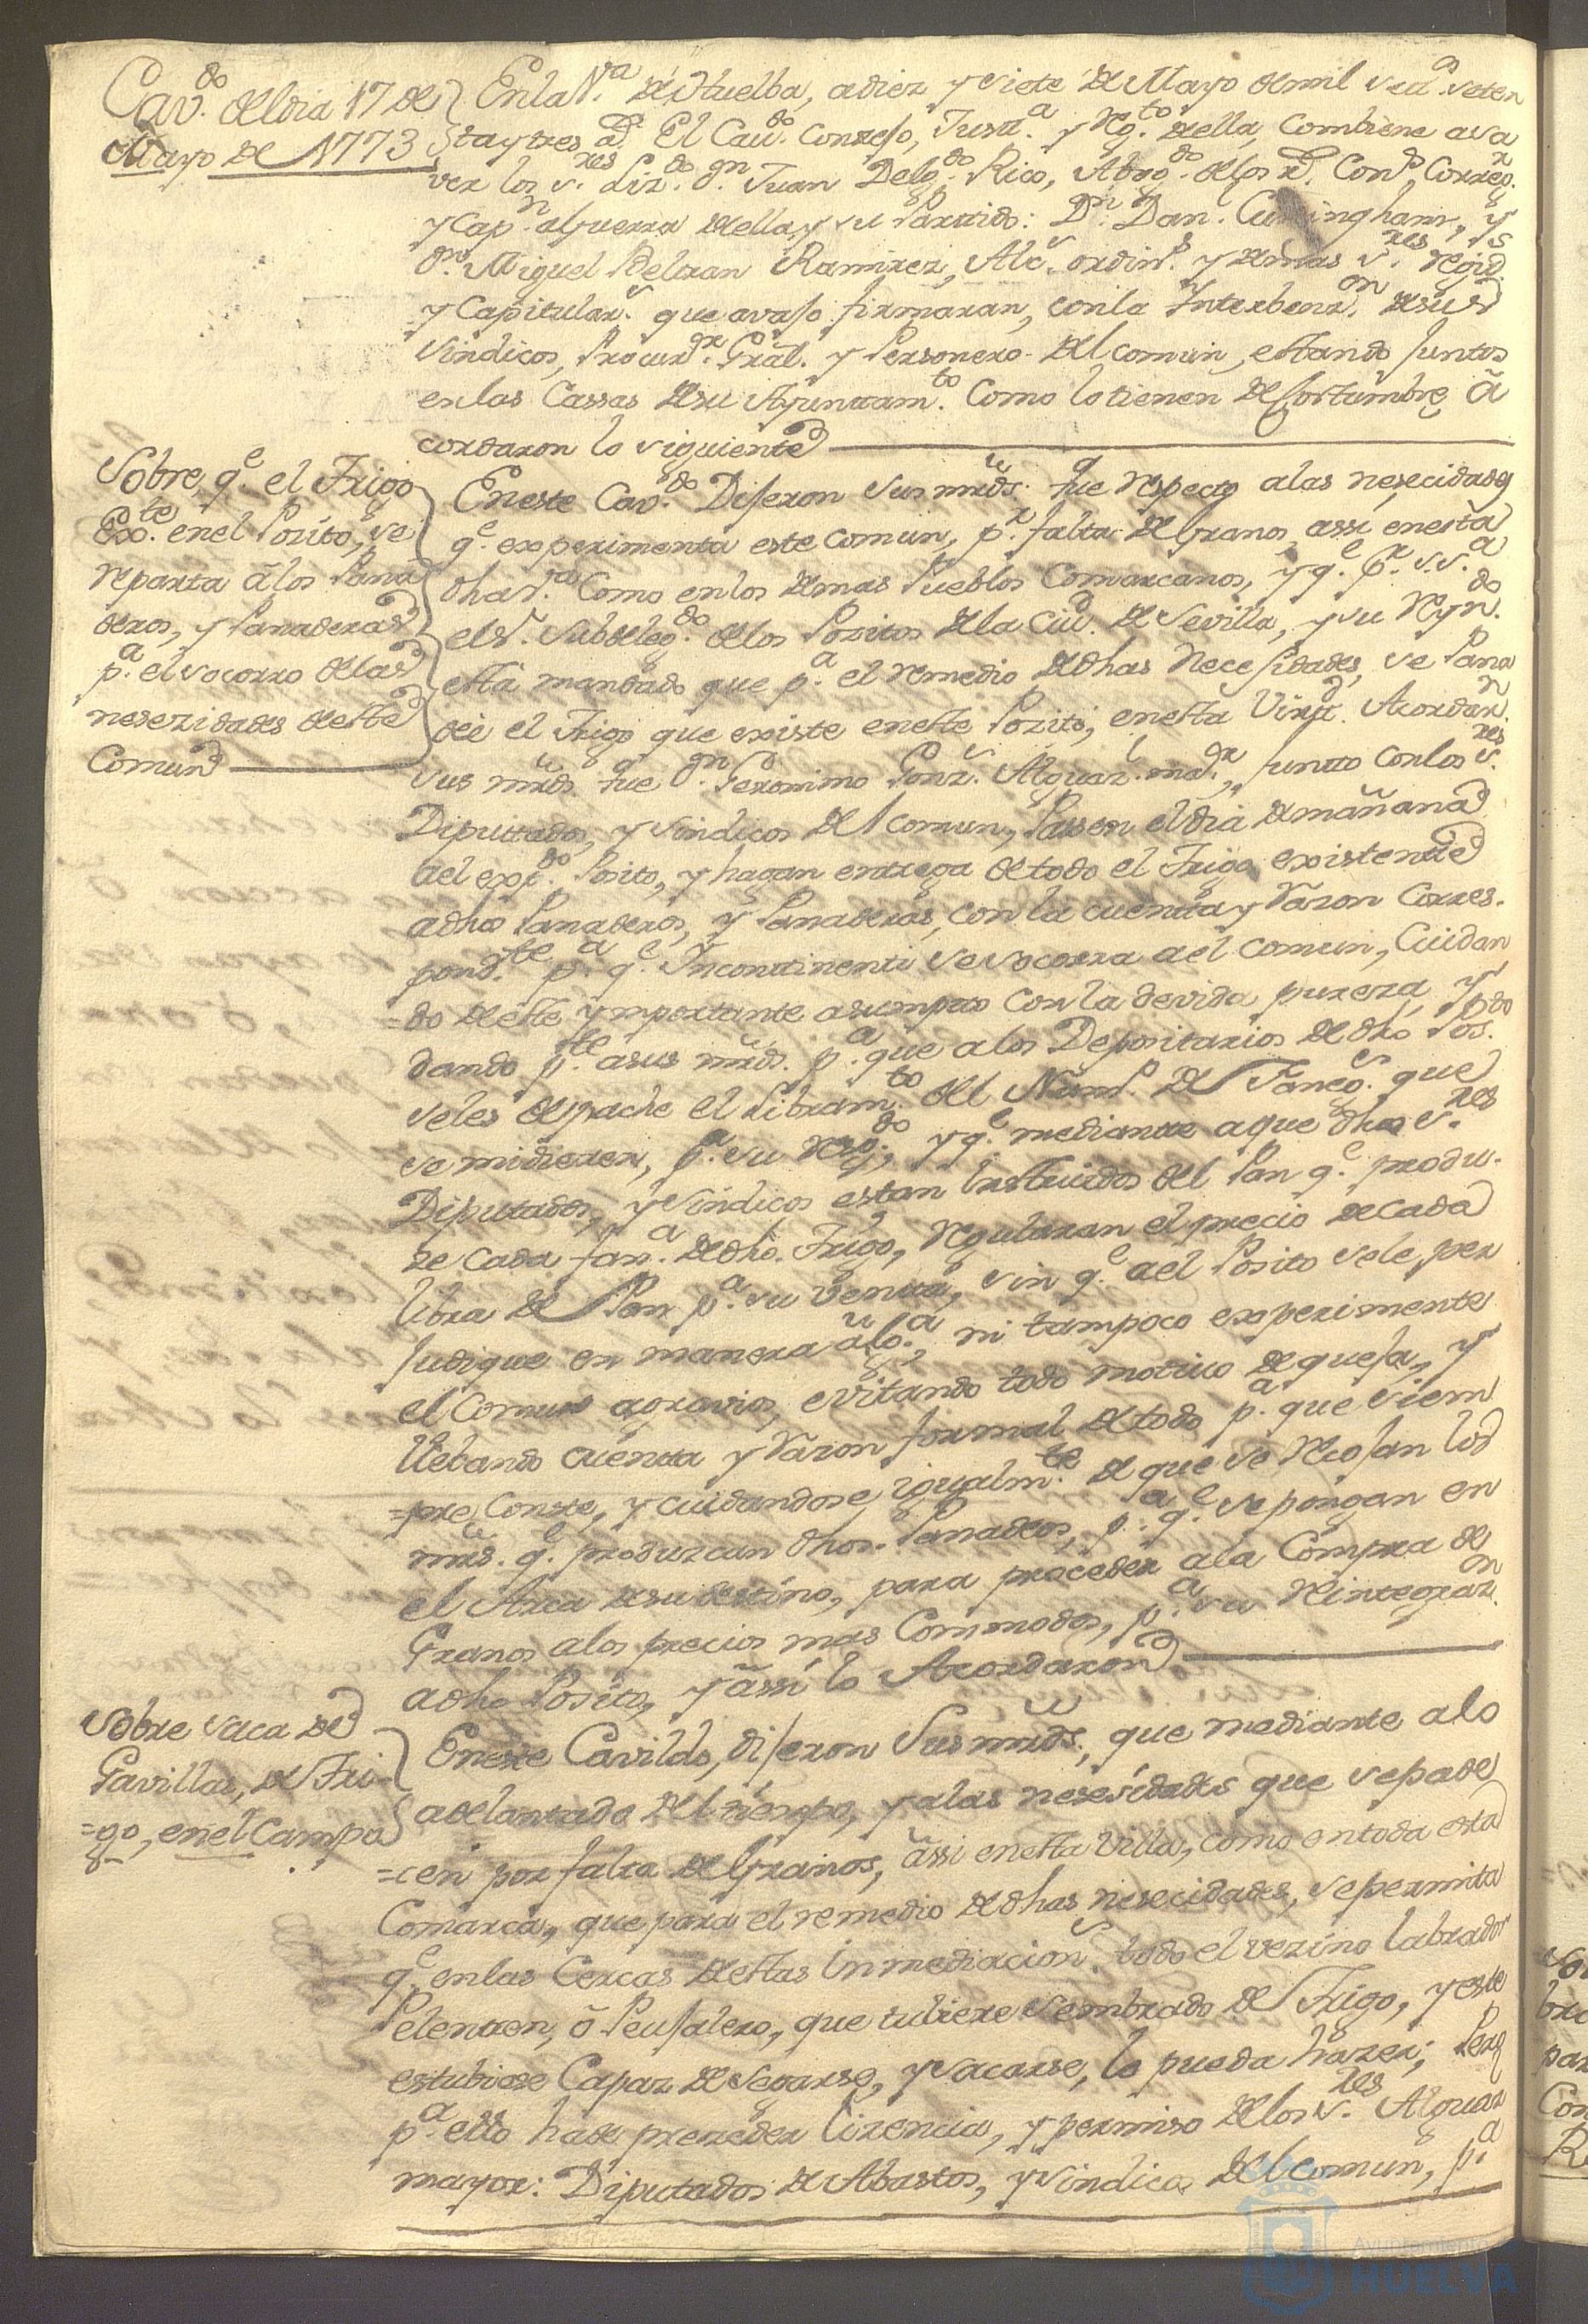 Cav.do del dia 17 de
Mayo de 1773
En la V.a de Huelba, a diez y siete de Mayo de mil set.s seten
ta y tres a.s El Cav.do Conzejo, Just.a y Reg.to della, combiene a sa
ver los S.res Liz.do d.n Juan Delg.do Rico, Abog.do de los R.s Con.s, Correg.r
y Cap.n a guerra della, y su Partido: D.n Dan. Cunningham, y
d.n Miguel Beltran Ramirez, Alc.s ordin.s y demas S.res Regid.s
y Capitular.s que avajo firmaran, con la Interbenz.on de sus
Sindicos, Procurd.r Gral. y Personero del comun, estando juntos
en las Cassas de su Ayuntam.to Como lo tienen de costumbre, a
cordaron lo siguiente
Sobre q.e el Trigo
Exs.te en el Posito, se
reparta a los Pana
deros, y Panaderas
p.a el socorro de las
nesezidades deste
Comun
En este Cav.do Dijeron sus mrds. que respecto a las nesecidades
q.e experimenta este comun, p.r falta de granos, assi en esta
dha V.a Como en los demas Pueblos Comarcanos, y q.e p.r S.S.a
el S.r Subdeleg.do de los Pozitos de la Ciud. de Sevilla, y su Reyn.do
esta mandado que p.a el remedio de dhas necesidades, se Pana
dee el Trigo que existe en este Pozito, en esta Virtd. Acordar.n
sus mrds. que d.n Geronimo Gonz.s Alguaz.l ma.or, junto con los S.res
Diputtados, y Sindicos del comun, Passen el dia de mañana
a el exp.do Posito, y hagan entrega de todo el Trigo existente
a dhos Panaderos, y Panaderas, con la cuenta y Razon Corres-
pond.te p.a q.e Incontinenti se socorra a el comun, Cuidan
=do deste ymportante asumpto con la devida pureza, y
dando p.te a sus mrds. p.a que a los Depositarios de dho Pos.to
se les despache el Libram.to del Num.o de Faneg.s que
se midieren, p.a su resg.do, y q.e mediante a que dhos S.res
Diputados, y Sindicos estan Instruidos del Pan q.e produ-
ze cada fan.a de dho Trigo, regularan el precio de cada
libra de Pan p.a su venta, sin q.e a el Posito se le per
judique en manera alg.a, ni tampoco experimente
el Comun agravios, evitando todo motivo de queja, y
llebando cuenta y Razon formal de todo p.a que siem
=pre Conste, y cuidandose igualm.te de que se recojan los
mrs. q.e produzcan dhos Panadeos, p.a q.e se pongan en
el Arca de su destino, para proceder a la Compra de
Granos a los precios mas Commodos, p.a su reintegraz.on
a dho Posito, y assi lo Acordaron
Sobre saca de
Gavillas, de Tri
=go, en el Campo
En este Cavildo, dijeron Sus mrds., que mediante a lo
adelantado del tiempo, y a las nesesidades que se pade
=cen por falta de Granos, assi en esta Villa, como en toda esta
Comarca, que para el remedio de dhas nesecidades, se permita
q.e en las Cercas destas Inmediacion.s todo el vezino labrador
Pelentrin, o Peujalero, que tubiere sembrado de Trigo, y este
estubiese Capaz de segarse, y sacarse, lo pueda hazer; Pero
p.a ello ha de prezeder lizencia, y permiso de los S.res Alguaz
mayor: Diputados de Abastos, y Sindico del comun, p.a
Ayuntamiento
HUELVA